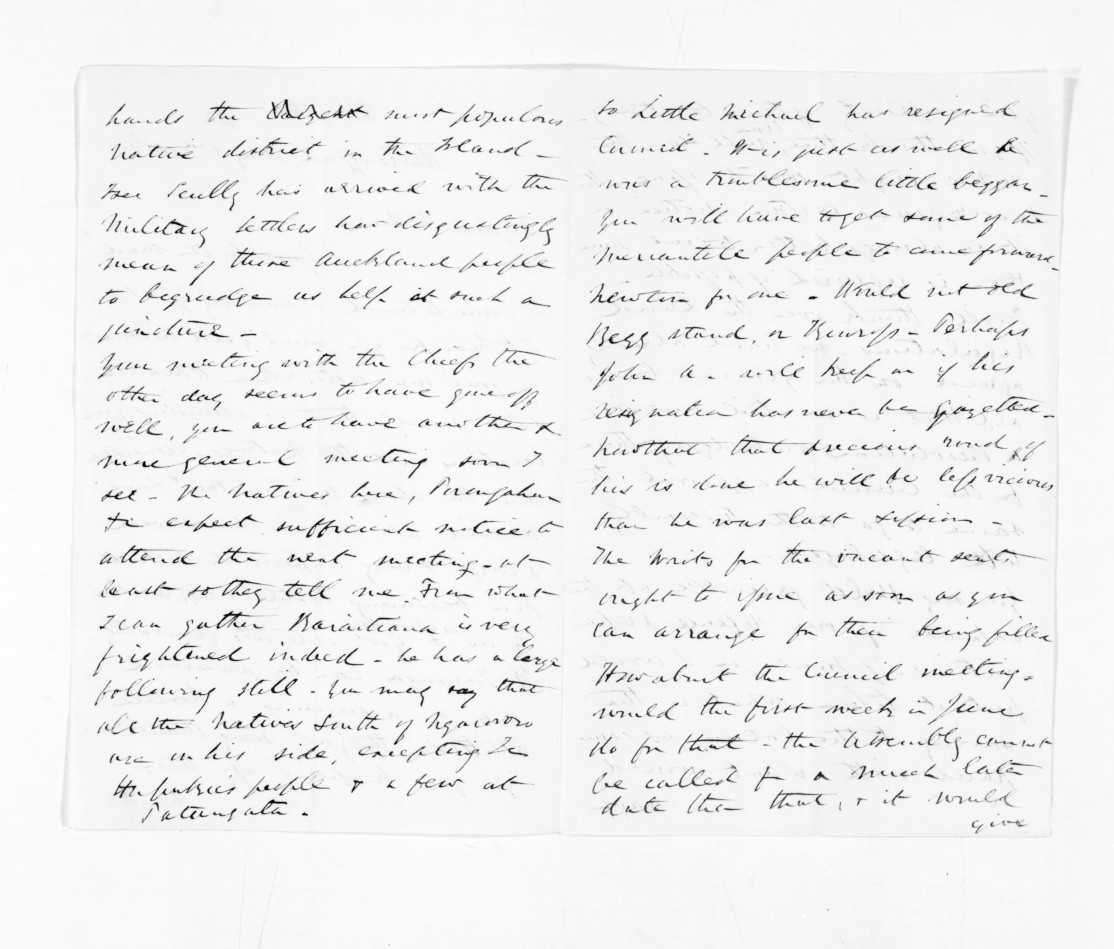 hands the most populous
native district in the Island -
See Scully has arrived with the
Military Settlers how disgustingly
mean of those Auckland people
to begrudge us help at such a
juncture -
Your meeting with the Chiefs the
other day seems to have gone off
well, you are to have another &
more general meeting soon I
see - The Natives here, Porangahau
&c expect sufficient notice to
attend the next meeting - at
least so they tell me. From what
I can gather Karaitiana is very
frightened indeed - he has a large
following still - You may say that
all the Natives South of Ngaruroro
are on his side, excepting Te
Hapuku's people & a few at
Patangata.
So Little Michael has resigned
Council - It is just as well he
was a troublesome little beggar -
You will have to get some of the
Mercantile people to come forward -
Newton for one - Would not old
Begg stand, or Kinross - Perhaps
John A - will keep on if his
resignation has never been gazetted -
now that that precious road of
his is done he will be less vicious
than he was last session -
The Writs for the vacant seats
ought to issue as soon as you
can arrange for their being filled
How about the Council meeting -
would the first week in June
do for that - the Assembly cannot
be called for a much later
date than that, & it would
give